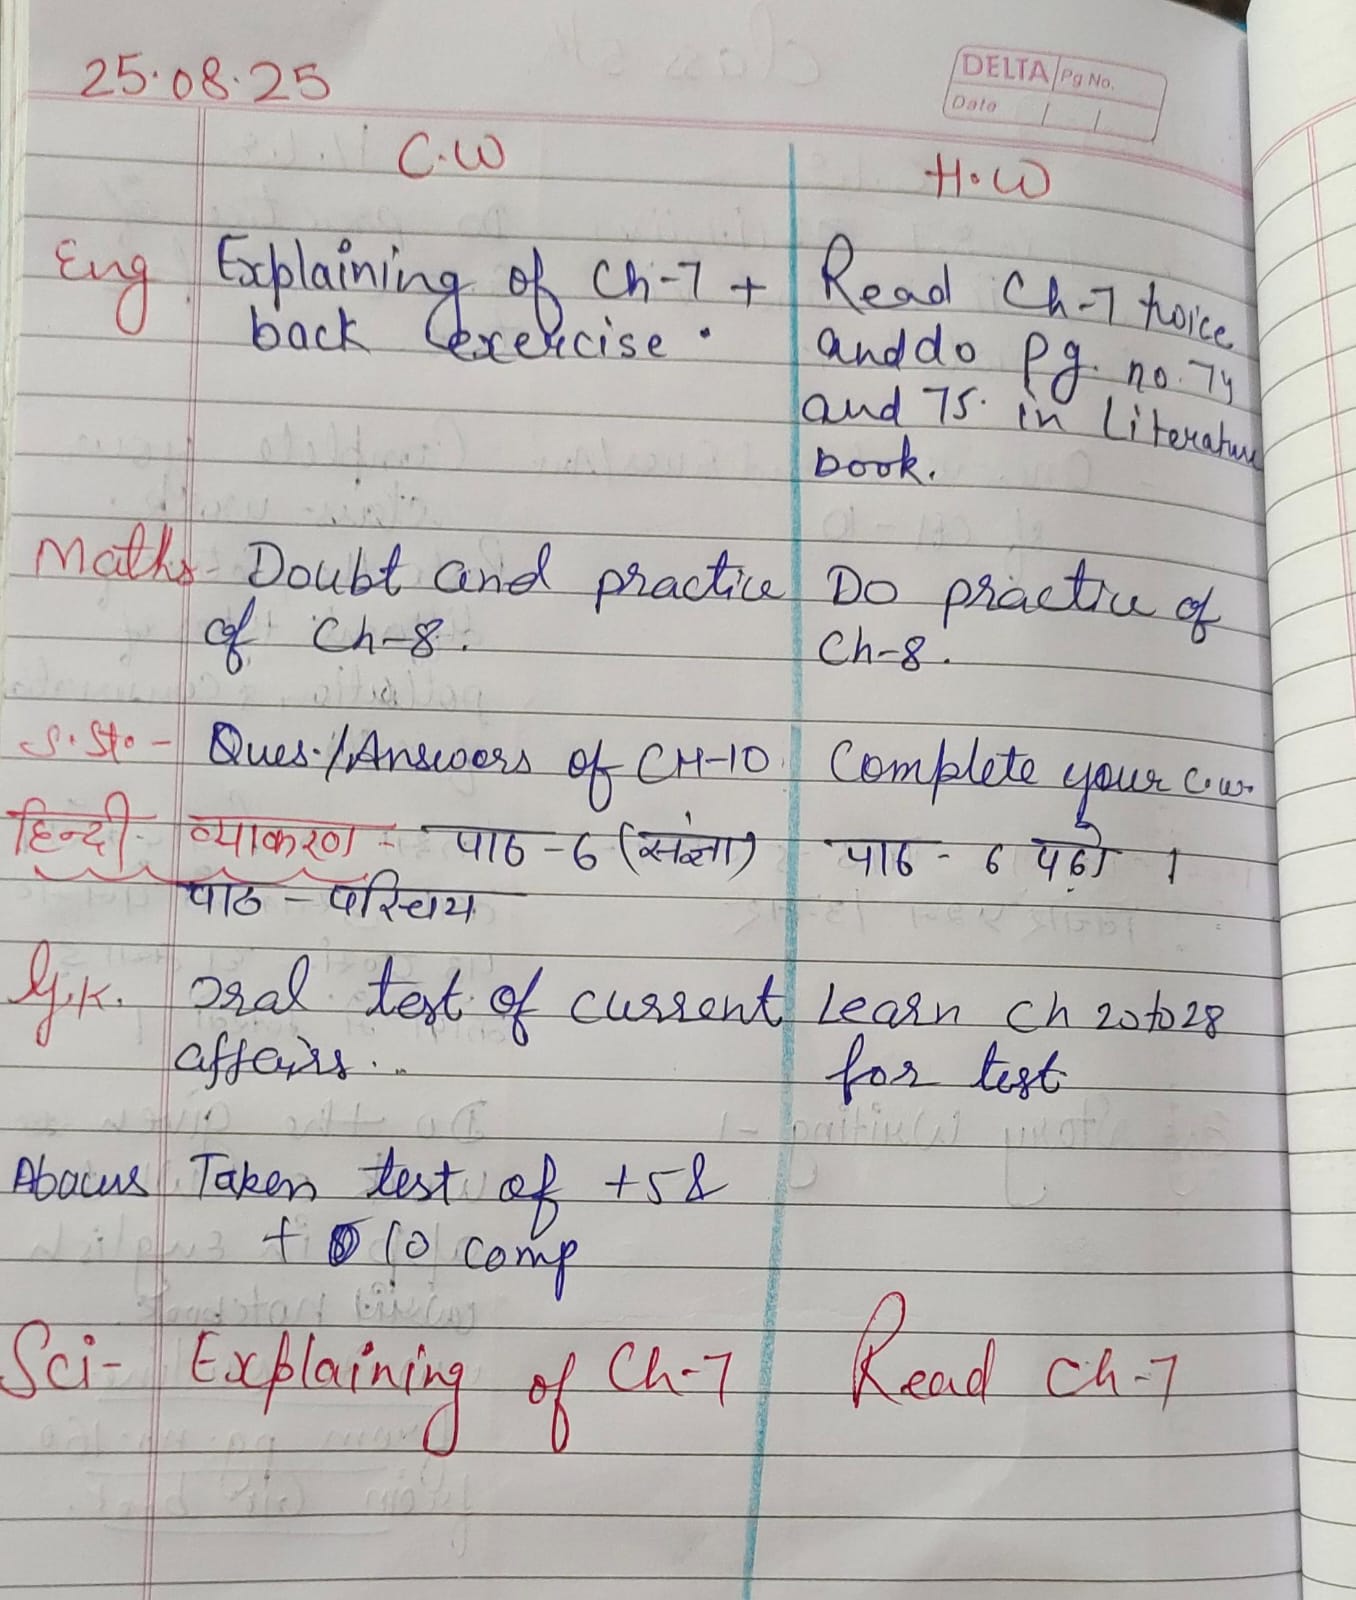 25.08.25
DELTA Pg No.
Date / /
C.W H.W
Eng Explaining of Ch-7 + Read Ch-7 twice
back exercise. and do Pg. no. 74
and 75. in Literature
book.
Maths- Doubt and practice Do practice of
of Ch-8. Ch-8.
S.St.- Ques./Answers of CH-10. Complete your c.w.
हिन्दी- व्याकरण - पाठ - 6 (संज्ञा) पाठ - 6 पढ़ो ।
पाठ - परिचय
G.K. Oral test of current Learn Ch 20 to 28
affairs... for test
Abacus Taken test of +5 &
+ 10 comp
Sci- Explaining of Ch-7 Read Ch-7